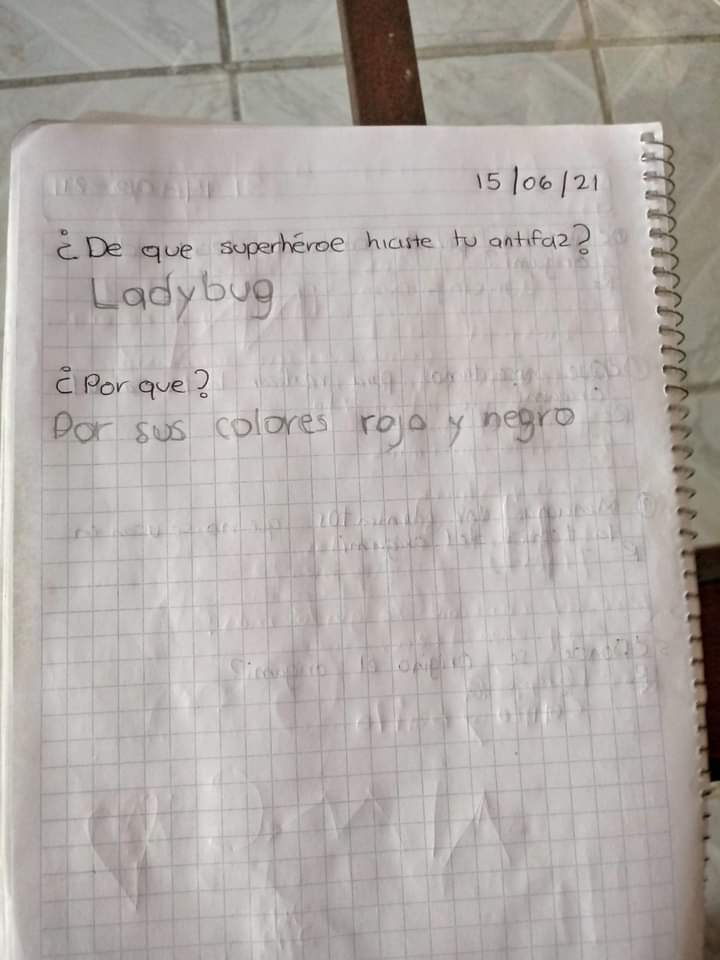 15/06/21
¿De que superhéroe hiciste tu antifaz?
Ladybug
¿Por que?
Por sus colores rojo y negro